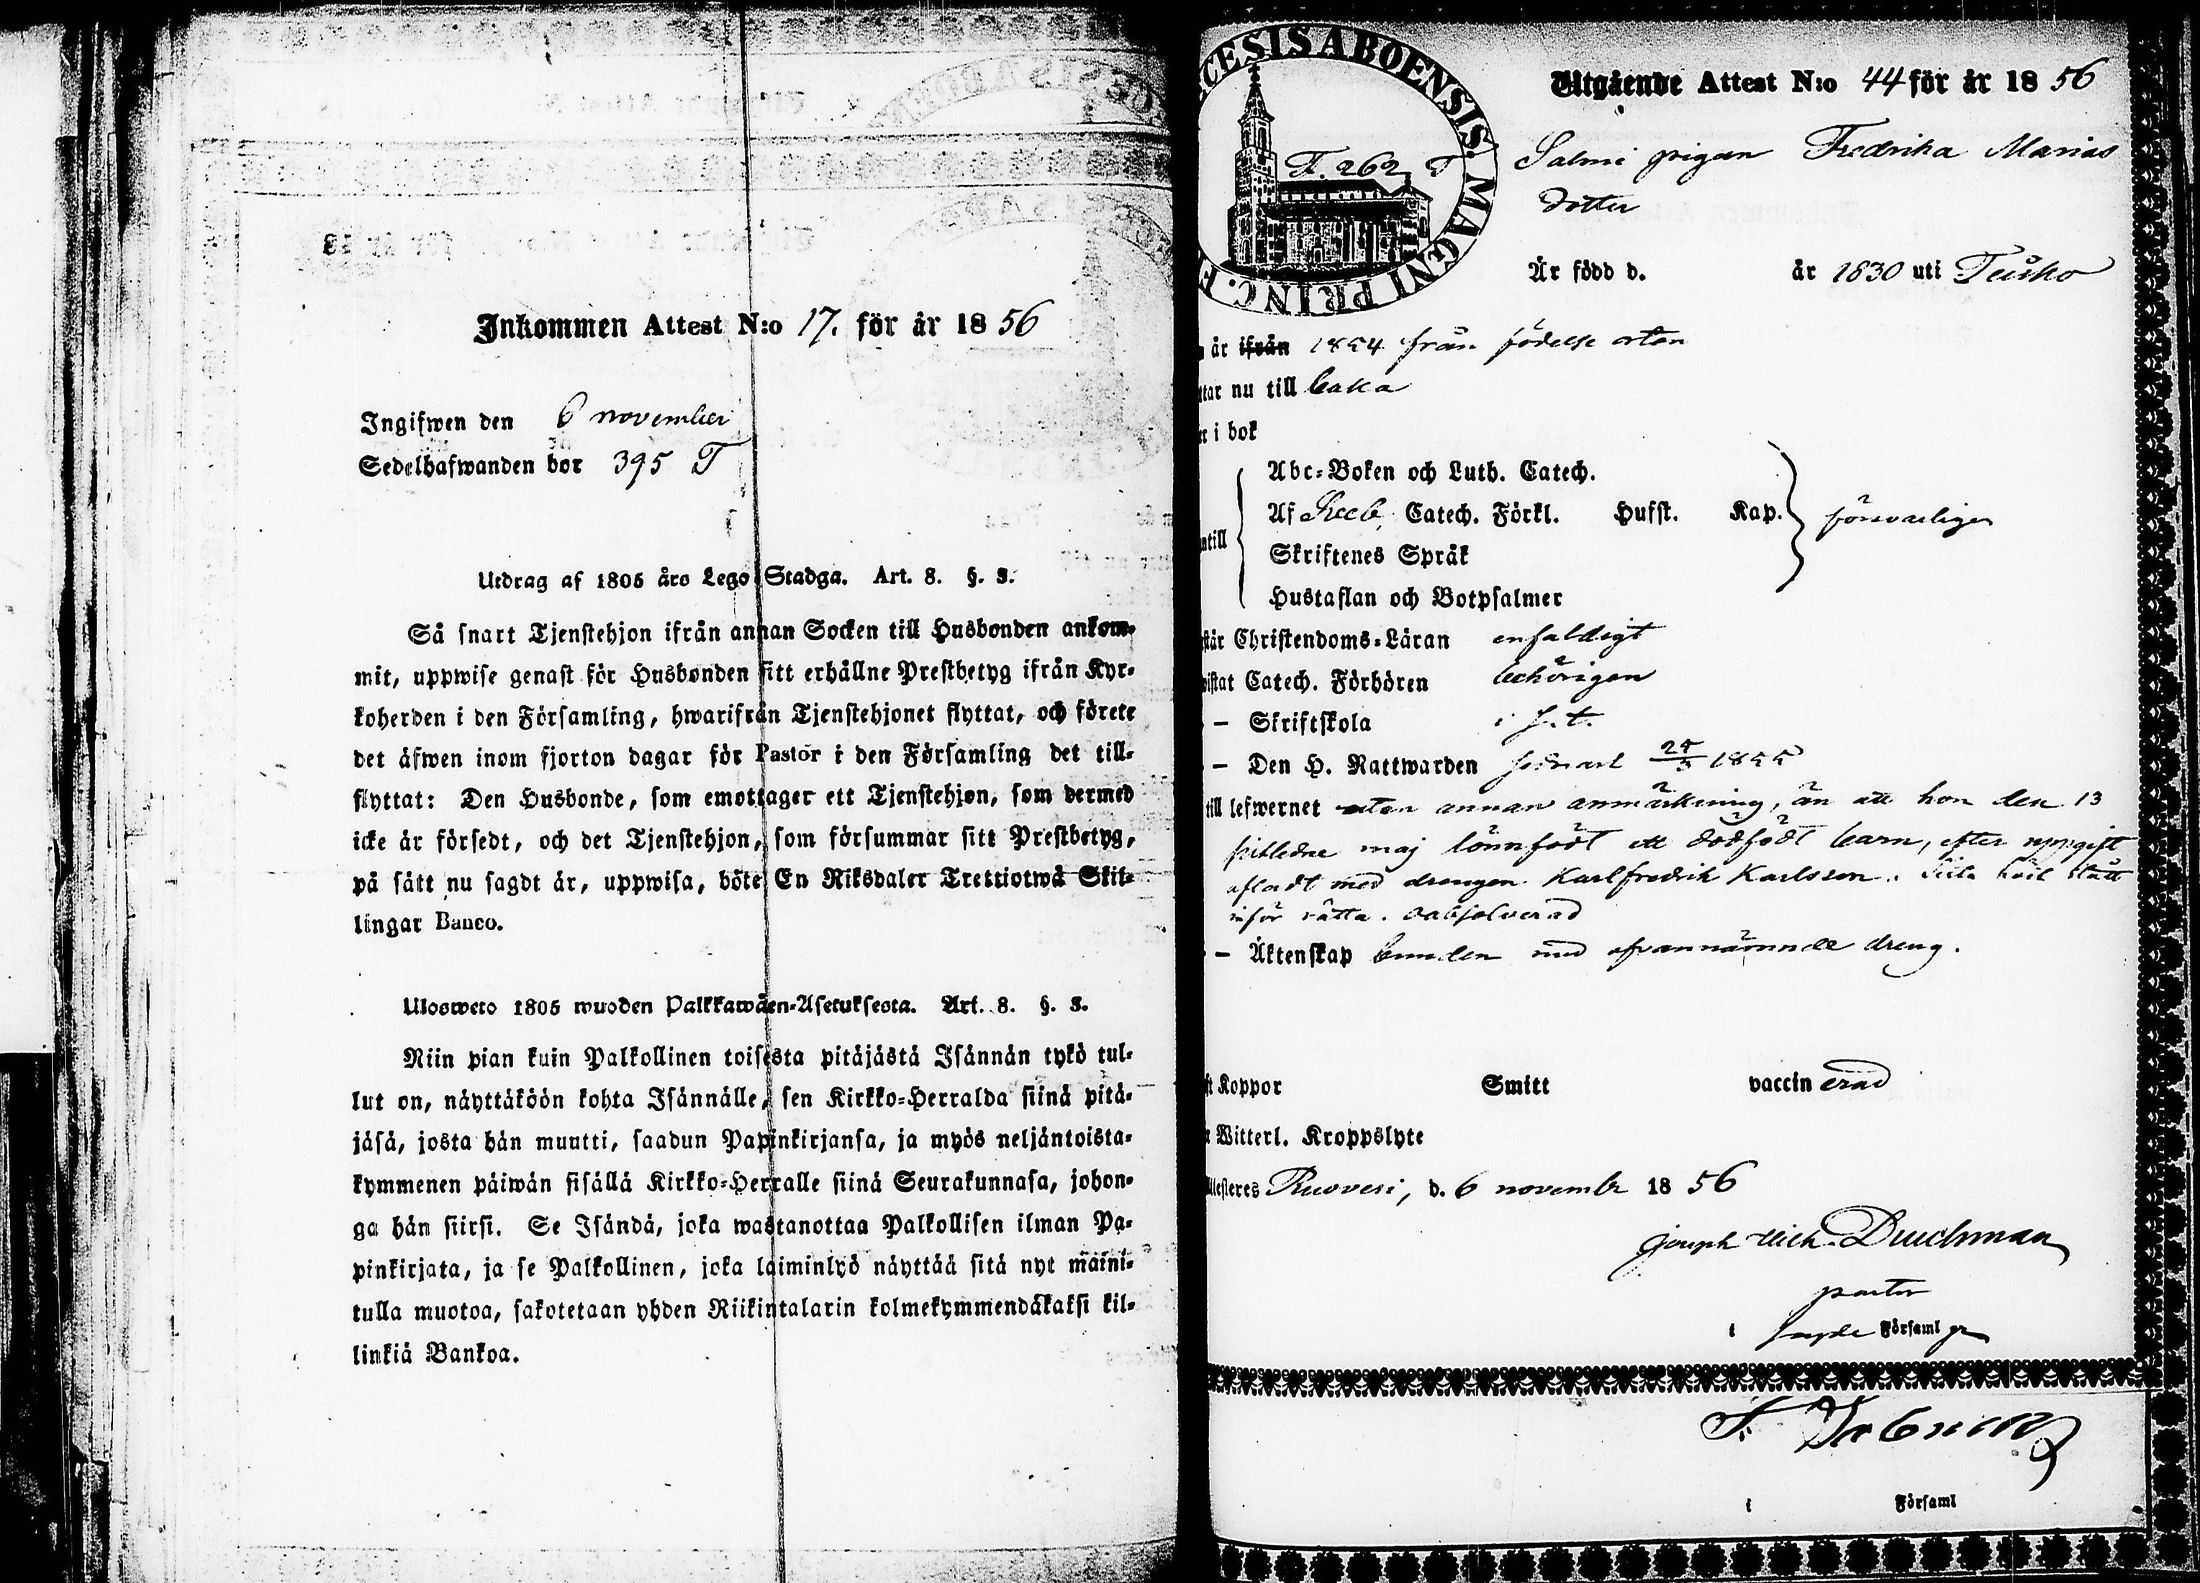 Inkommen Attest N:o 17. för år 1856
Ingifwen den 6 november
Sedelhafwanden bor 395 T
Utdrag af 1805 års Lego Stadga. Art. 8. §. 3.
Så snart Tjenstehjon ifrån annan Socken till Husbonden ankom-
mit, uppwise genast för Husbonden sitt erhållne Prestbetyg ifrån Kyr-
koherden i den Församling, hwarifrån Tjenstehjonet flyttat, och förete
det äfwen inom fjorton dagar för Pastor i den Församling det till-
flyttat: Den Husbonde, som emottager ett Tjenstehjon, som dermed
icke är försedt, och det Tjenstehjon, som försummar sitt Prestbetyg,
på sätt nu sagdt är, uppwisa, böte En Riksdaler Trettiotwå Skil-
lingar Banco.
Ulosweto 1805 wuoden Palkkawäen-Asetuksesta. Art. 8. §. 3.
Niin pian kuin Palkollinen toisesta pitäjästä Isännän tykö tul-
lut on, näyttäköön kohta Isännälle, sen Kirkko-Herralda siinä pitä-
jäsä, josta hän muutti, saadun Papinkirjansa, ja myös neljäntoista-
kymmenen päiwän sisällä Kirkko-Herralle siinä Seurakunnasa, johon-
ga hän siirsi. Se Isändä, joka wastanottaa Palkollisen ilman Pa-
pinkirjata, ja se Palkollinen, joka laiminlyö näyttää sitä nyt maini-
tulla muotoa, sakotetaan yhden Riikintalarin kolmekymmendäkaksi kil-
linkiä Bankoa.
CESIS ABOENSIS. MAGNI PRINC. F
T. 262
Utgående Attest N:o 44 för år 1856
Salmi pigan Fredrika Marias
dotter
Är född d. år 1830 uti Teisko
är ifrån 1854 från födelse orten
tar nu till baka
i bok
Abc-Boken och Luth. Catech.
Af Catech. Förkl. Hufst. Kap. försvarligen
ntill
Skriftenes Språk
Hustaflan och Botpsalmer
står Christendoms-Läran enfaldigt
istat Catech. Förhören behörigen
– Skriftskola i s. t.
– Den H. Nattwarden 1855
till lefwernet utan annan anmärkning, än att hon den 13
maj lönnfödt ett dödfödt barn, efter uppgift
afladt med drengen Karl Fredrik Karlsson.
inför rätta. oabsolverad
– Äktenskap bunden med ofvannämnde dreng.
Koppor Smitt vaccinerad
Witterl. Kroppslyte
Ruovesi, d. 6 novembr 1856
Pastor
i Församl
i Församl